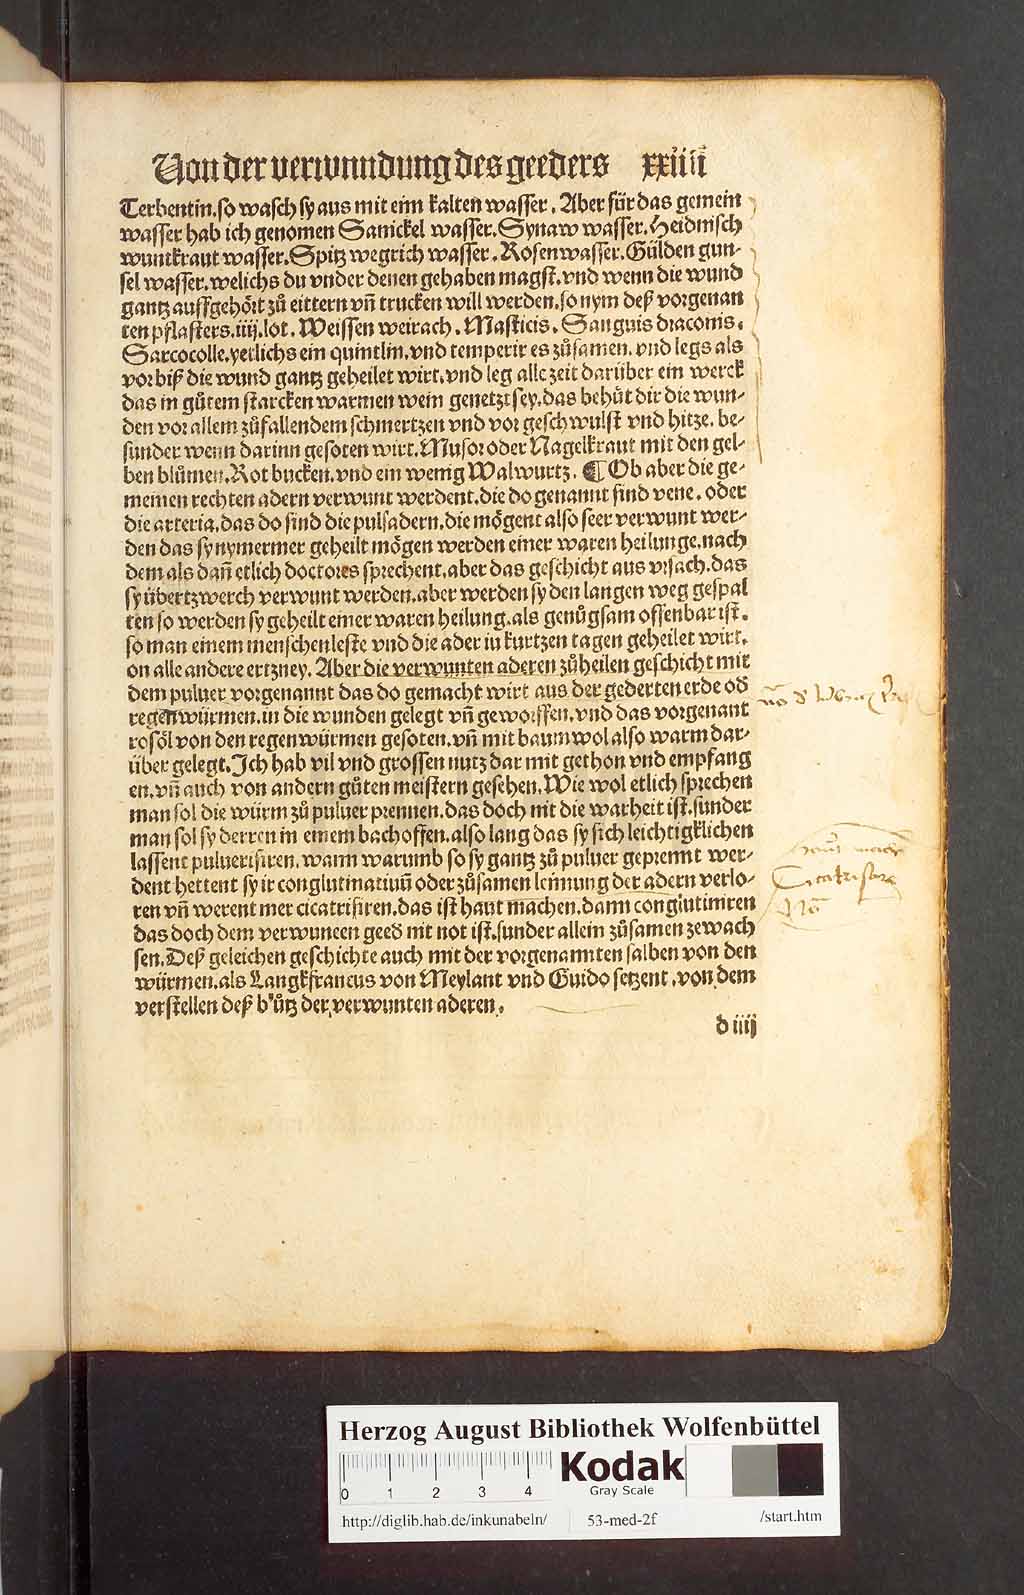 Von der verwundung des geeders xxiiij
Terbentin. so wasch sy aus mit eim kalten wasser. Aber für das gemein
wasser hab ich genomen Sanickel wasser. Synaw wasser. Heidnisch
wuntkraut wasser. Spitz wegrich wasser. Rosen wasser. Gülden gun⸗
sel wasser. welichs du vnder denen gehaben magst. vnd wenn die wund
gantz auffgehört zů eittern vñ trucken will werden. so nym deß vorgenan
ten pflasters. iiij. lot. Weissen weirach. Masticis. Sanguis draconis.
Sarcocolle. yetlichs ein quintlin. vnd temperir es zůsamen. vnd legs als
vor biß die wund gantz geheilet wirt. vnd leg alle zeit darüber ein werck
das in gůtem starcken warmen wein genetzt sey. das behůt dir die wun⸗
den vor allem zůfallendem schmertzen vnd vor geschwulst vnd hitze. be⸗
sunder wenn darinn gesoten wirt. Musor oder Nagelkraut mit den gel⸗
ben blůmen. Rot bucken. vnd ein wenig Walwurtz. ¶ Ob aber die ge⸗
meinen rechten adern verwunt werdent. die do genannt sind vene. oder
die arteria. das do sind die pulsadern. die mögent also seer verwunt wer⸗
den das sy nymermer geheilt mögen werden einer waren heilunge. nach
dem als dañ etlich doctores sprechent. aber das geschicht aus vrsach. das
sy übertzwerch verwunt werden. aber werden sy den langen weg gespal
ten so werden sy geheilt einer waren heilung. als genůgsam offenbar ist.
so man einem menschen leſte vnd die ader in kurtzen tagen geheilet wirt.
on alle andere ertzney. Aber die verwunten aderen zůheilen geschicht mit
dem puluer vorgenannt das do gemacht wirt aus der gederten erde od
regenwürmen. in die wunden gelegt vñ geworffen. vnd das vorgenant
rosöl von den regenwürmen gesoten. vñ mit baumwol also warm dar⸗
über gelegt. Ich hab vil vnd grossen nutz dar mit gethon vnd empfang
en. vñ auch von andern gůten meistern gesehen. Wie wol etlich sprechen
man sol die würm zů puluer prennen. das doch nit die warheit ist. sunder
man sol sy derren in einem bachoffen. also lang das sy sich leichtigklichen
lassent puluerisiren. wann warumb so sy gantz zů puluer geprennt wer⸗
dent hettent sy ir conglutinatiuũ oder zůsamen leimung der adern verlo⸗
ren vñ werent mer cicatrisiren. das ist haut machen. dann conglutiniren
das doch dem verwunten geed nit not ist. sunder allein zůsamen zewach
sen. Deß geleichen geschichte auch mit der vorgenannten salben von den
würmen. als Langkfrancus von Meylant vnd Guido setzent. von dem
verstellen deß b'ůtz der verwunten aderen.
d iiij
Cicatrisare
Herzog August Bibliothek Wolfenbüttel
0 1 2 3 4
Kodak
Gray Scale
http://diglib.hab.de/inkunabeln/ 53-med-2f /start.htm